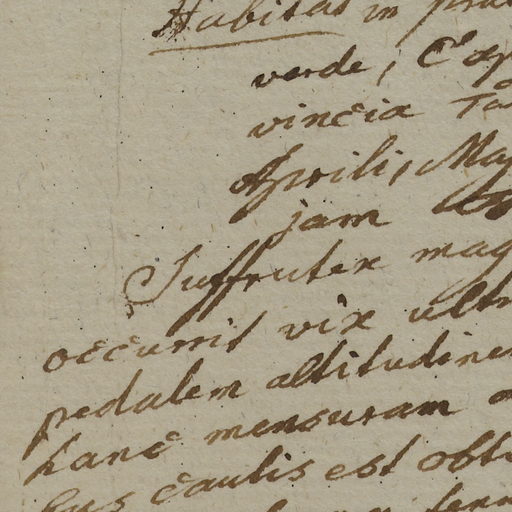 Habitat in pra
verde, Cap
vincia Ta
Aprili, Ma
jam
Suffrutex mag
occurrit vix ultr
pedalem altitudinem
hanc mensuram
caulis est obt